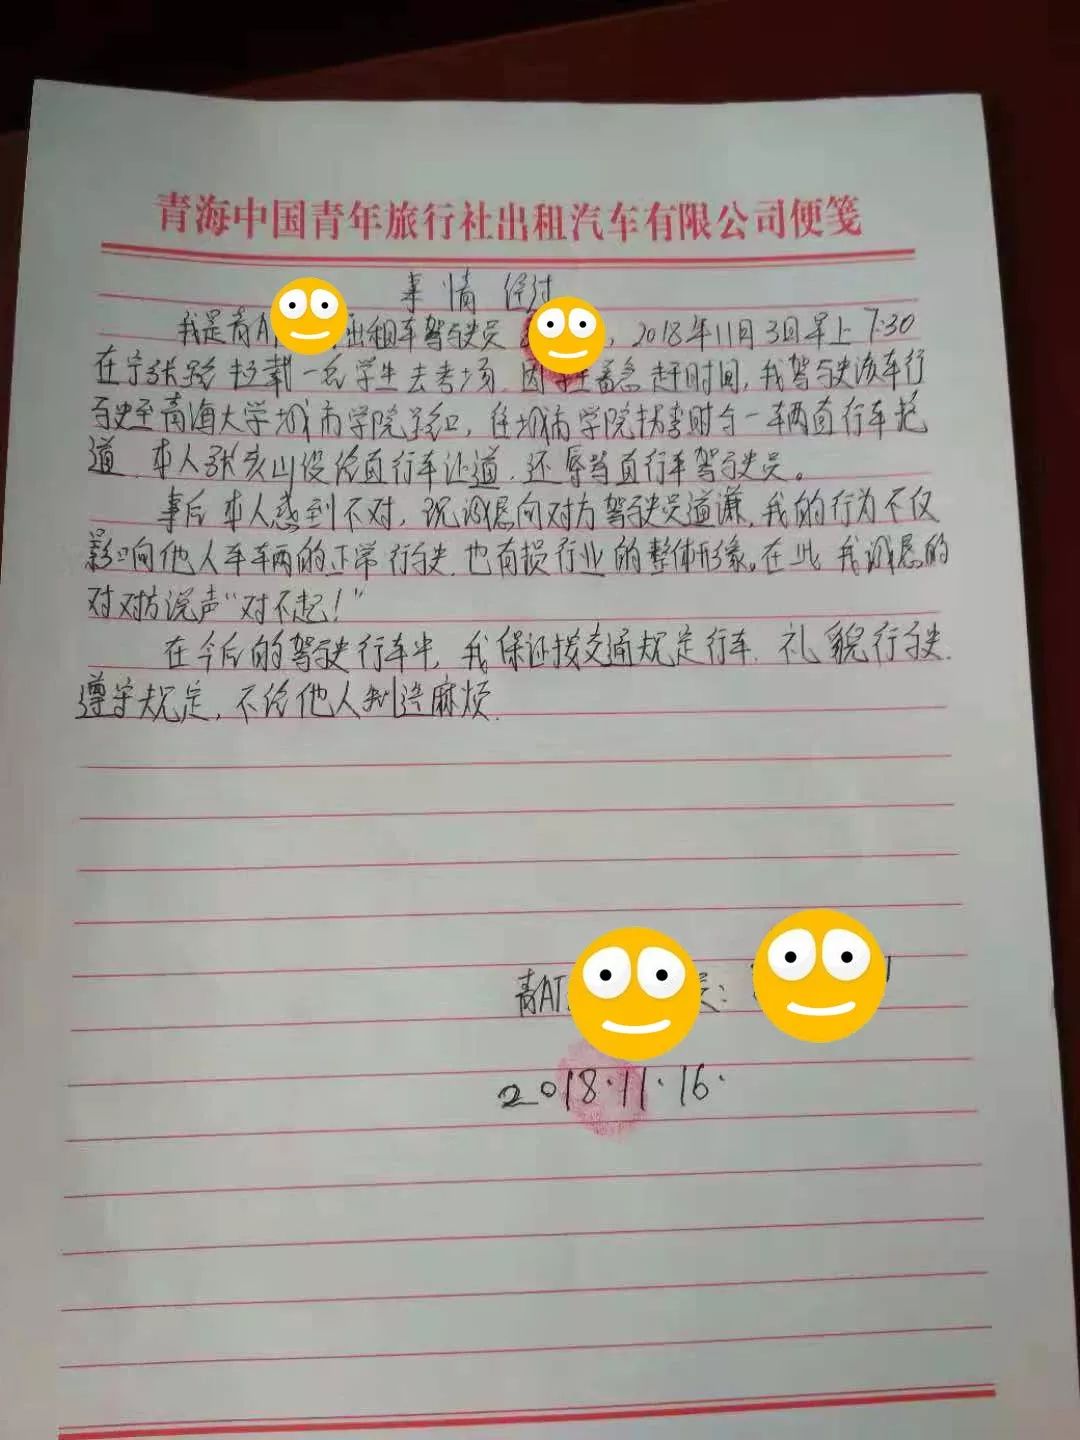 青海中国青年旅行社出租汽车有限公司便笺
事情经过
我是青A 出租车驾驶员 , 2018年11月3日早上7:30
在宁张路拉载一名学生去考场. 因学生着急赶时间, 我驾驶该车行
驶至青海大学城市学院路口, 在城市学院拐弯时与一车两直行车抢
道. 本人 没给直行车让道. 还辱骂直行车驾驶员。
事后本人感到不对, 现诚恳向对方驾驶员道谦, 我的行为不仅
影响他人车车两的正常行驶. 也有损行业的整体形象。在此我诚恳的
对对方说声“对不起!”
在今后的驾驶行车中, 我保证按交通规定行车. 礼貌行驶.
遵守规定, 不给他人制造麻烦.
青AT :
2018.11.16.